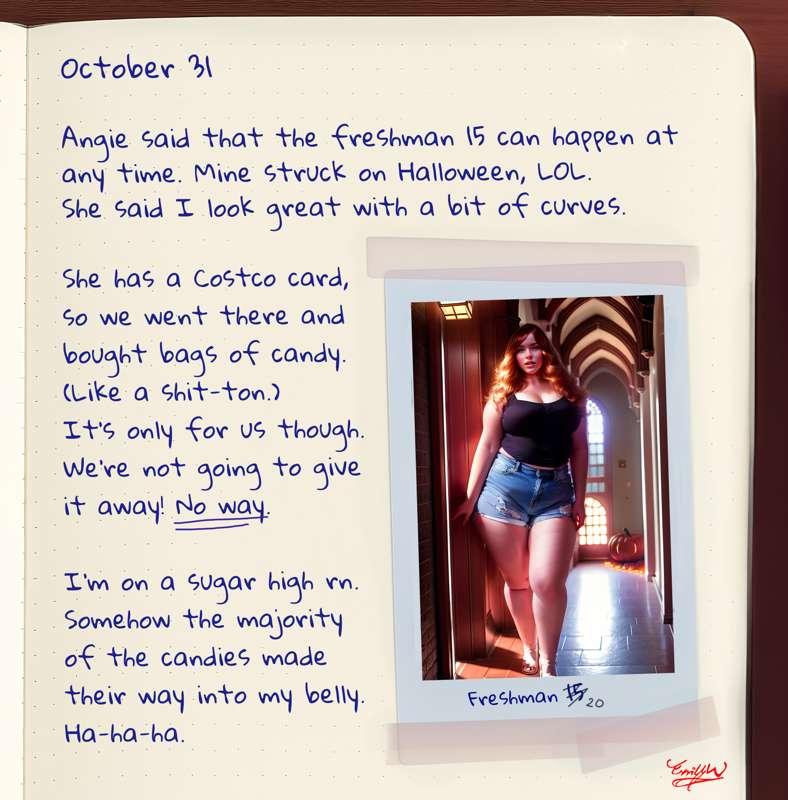 October 31
Angie said that the freshman 15 can happen at
any time. Mine struck on Halloween, LOL.
She said I look great with a bit of curves.
She has a Costco card,
so we went there and
bought bags of candy.
(Like a shit-ton.)
It's only for us though.
We're not going to give
it away! No way.
I'm on a sugar high rn.
Somehow the majority
of the candies made
their way into my belly.
Ha-ha-ha.
Freshman 15 20
EmilyW